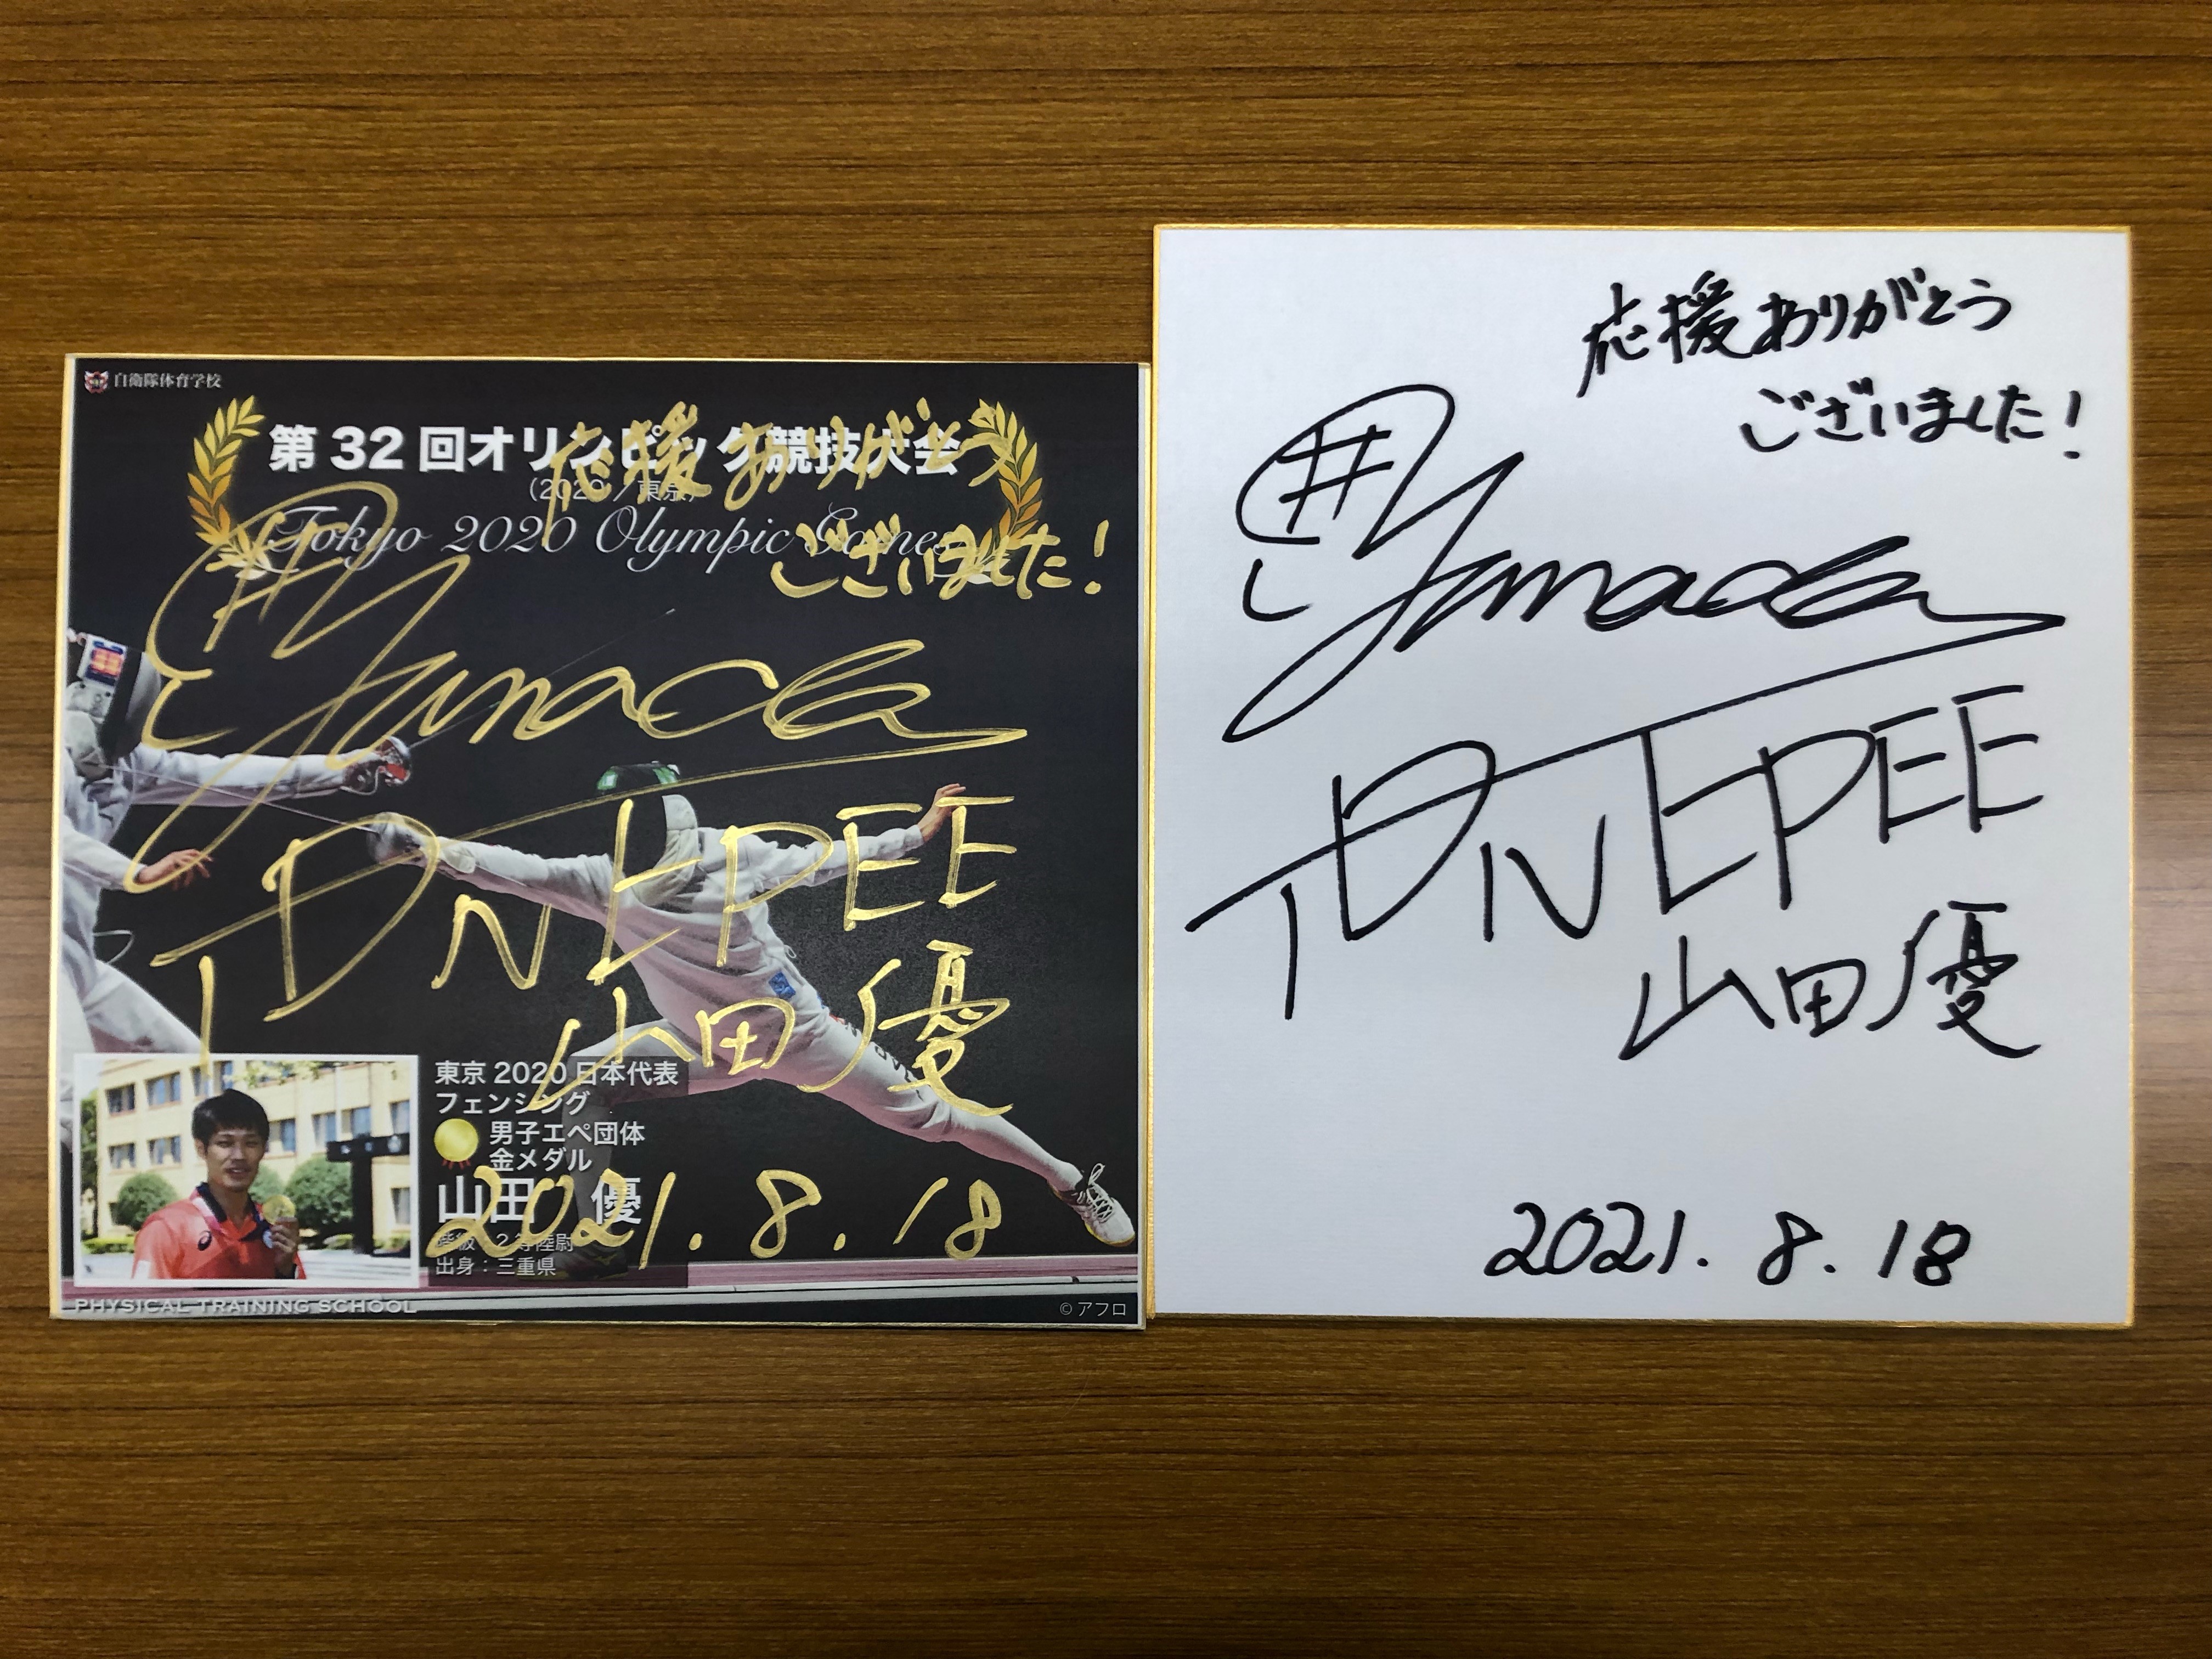 自衛隊体育学校
第32回オリンピック競技大会
(2020／東京)
Tokyo 2020 Olympic Games
応援ありがとう
ございました!
Yamada
JPN EPEE
山田優
2021.8.18
東京2020日本代表
フェンシング
男子エペ団体
金メダル
山田 優
階級：2等陸尉
出身：三重県
PHYSICAL TRAINING SCHOOL
©アフロ
応援ありがとう
ございました!
Yamada
JPN EPEE
山田優
2021.8.18